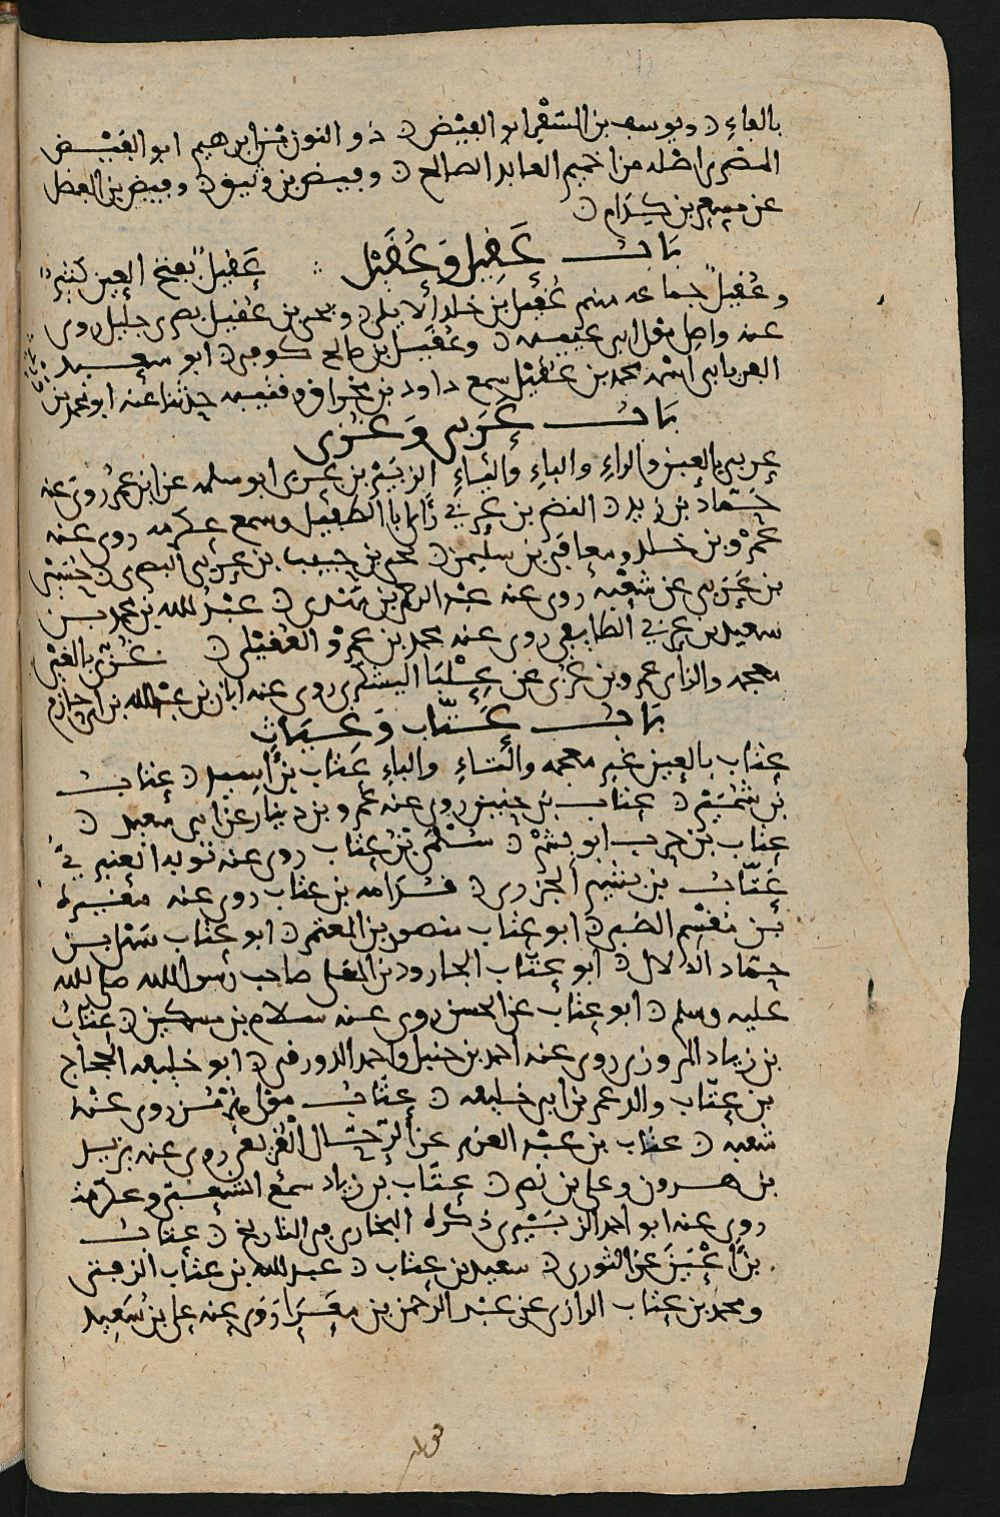 بالفاء ويوسف بن السفر ابو الفيض ذو النون بن ابرهيم ابو الفيض
المصري اصله من اخميم العابد الصالح وفيض بن وثيق وفيض بن الفضل
عن مسعر بن كدام
باب عَقِيل وَعُقَيْل عَقِيل بفتح العين كثير
وعُقيل جماعه منهم عُقيل بن خلد الايلي ويحيى بن عقيل بصري جليل روى
عنه واصل مولى ابي عيينه وعُقَيل بن صالح كوفي ابو سعيد
الفريابي اسمه محمد بن عُقيل سمع داود بن مخراق وقتيبه حدثنا عنه ابو محمد بن
باب عَرَبي وَغزي
عربي بالعين والراء والباء والياء الزبير بن عربي ابو سلمه عن ابن عمر روى عنه
حَمّاد بن زيد النضر بن عربي رأى ابا الطفيل وسمع عكرمه روى عنه
عمرو بن خلد ومعافى بن سليمن يحيى بن حبيب بن عربي البصري حسين
بن عَرَبي عن شعبه روى عنه عبد الرحمن بن عبد الله بن محمد بن
سعيد بن عربي الطايفي روى عنه محمد بن عمرو العقيلي غزي بالغين
معجمه والزاي عمرو بن غزي عن عِلْبَا اليشكري روى عنه ابان بن عبد الله بن ابي حازم
باب عَتّاب وَغياث
عتاب بالعين غير معجمه والتاء والباء عَتاب بن اَسيد عتاب
بن شُمَيْر عتاب بن حنين روى عنه عَمرو بن دينار عن ابي سعيد
عتاب بن حرب ابو بشر سَلْم بن عتاب روى عنه توبه العنبري
عَتّاب بن بشير الجزري قدامه بن عتاب روى عنه مغيره
بن مقسم الضبي ابو عتاب منصور بن المعتمر ابو عتاب سَهل بن
حماد الدلال ابو عتّاب الجارود بن المعلى صاحب رسول الله صلى الله
عليه وسلم ابو عتاب عن الحسن روى عنه سلام بن مسكين عتاب
بن زياد المروزي روى عنه احمد بن حنبل واحمد الدورقي ابو خليفه الحجاج
بن عتّاب والد عمر بن ابي خليفه عتاب مولى هُرْمُز روى عنه
شعبه عتاب بن عبد العزيز عن الرحّال القُريعي روى عنه يزيد
بن هرون وعلي بن نصر عتّاب بن زياد سمع الشعبي وعكرمه
روى عنه ابو احمد الزبَيْري ذكره البخاري في التاريخ عتاب
بن اَعْيَن عن الثوري سعيد بن عتاب عبد الله بن عتاب الزفتي
ومحمد بن عتاب الرازي عن عبد الرحمن بن مغرا روى عنه علي بن سعيد